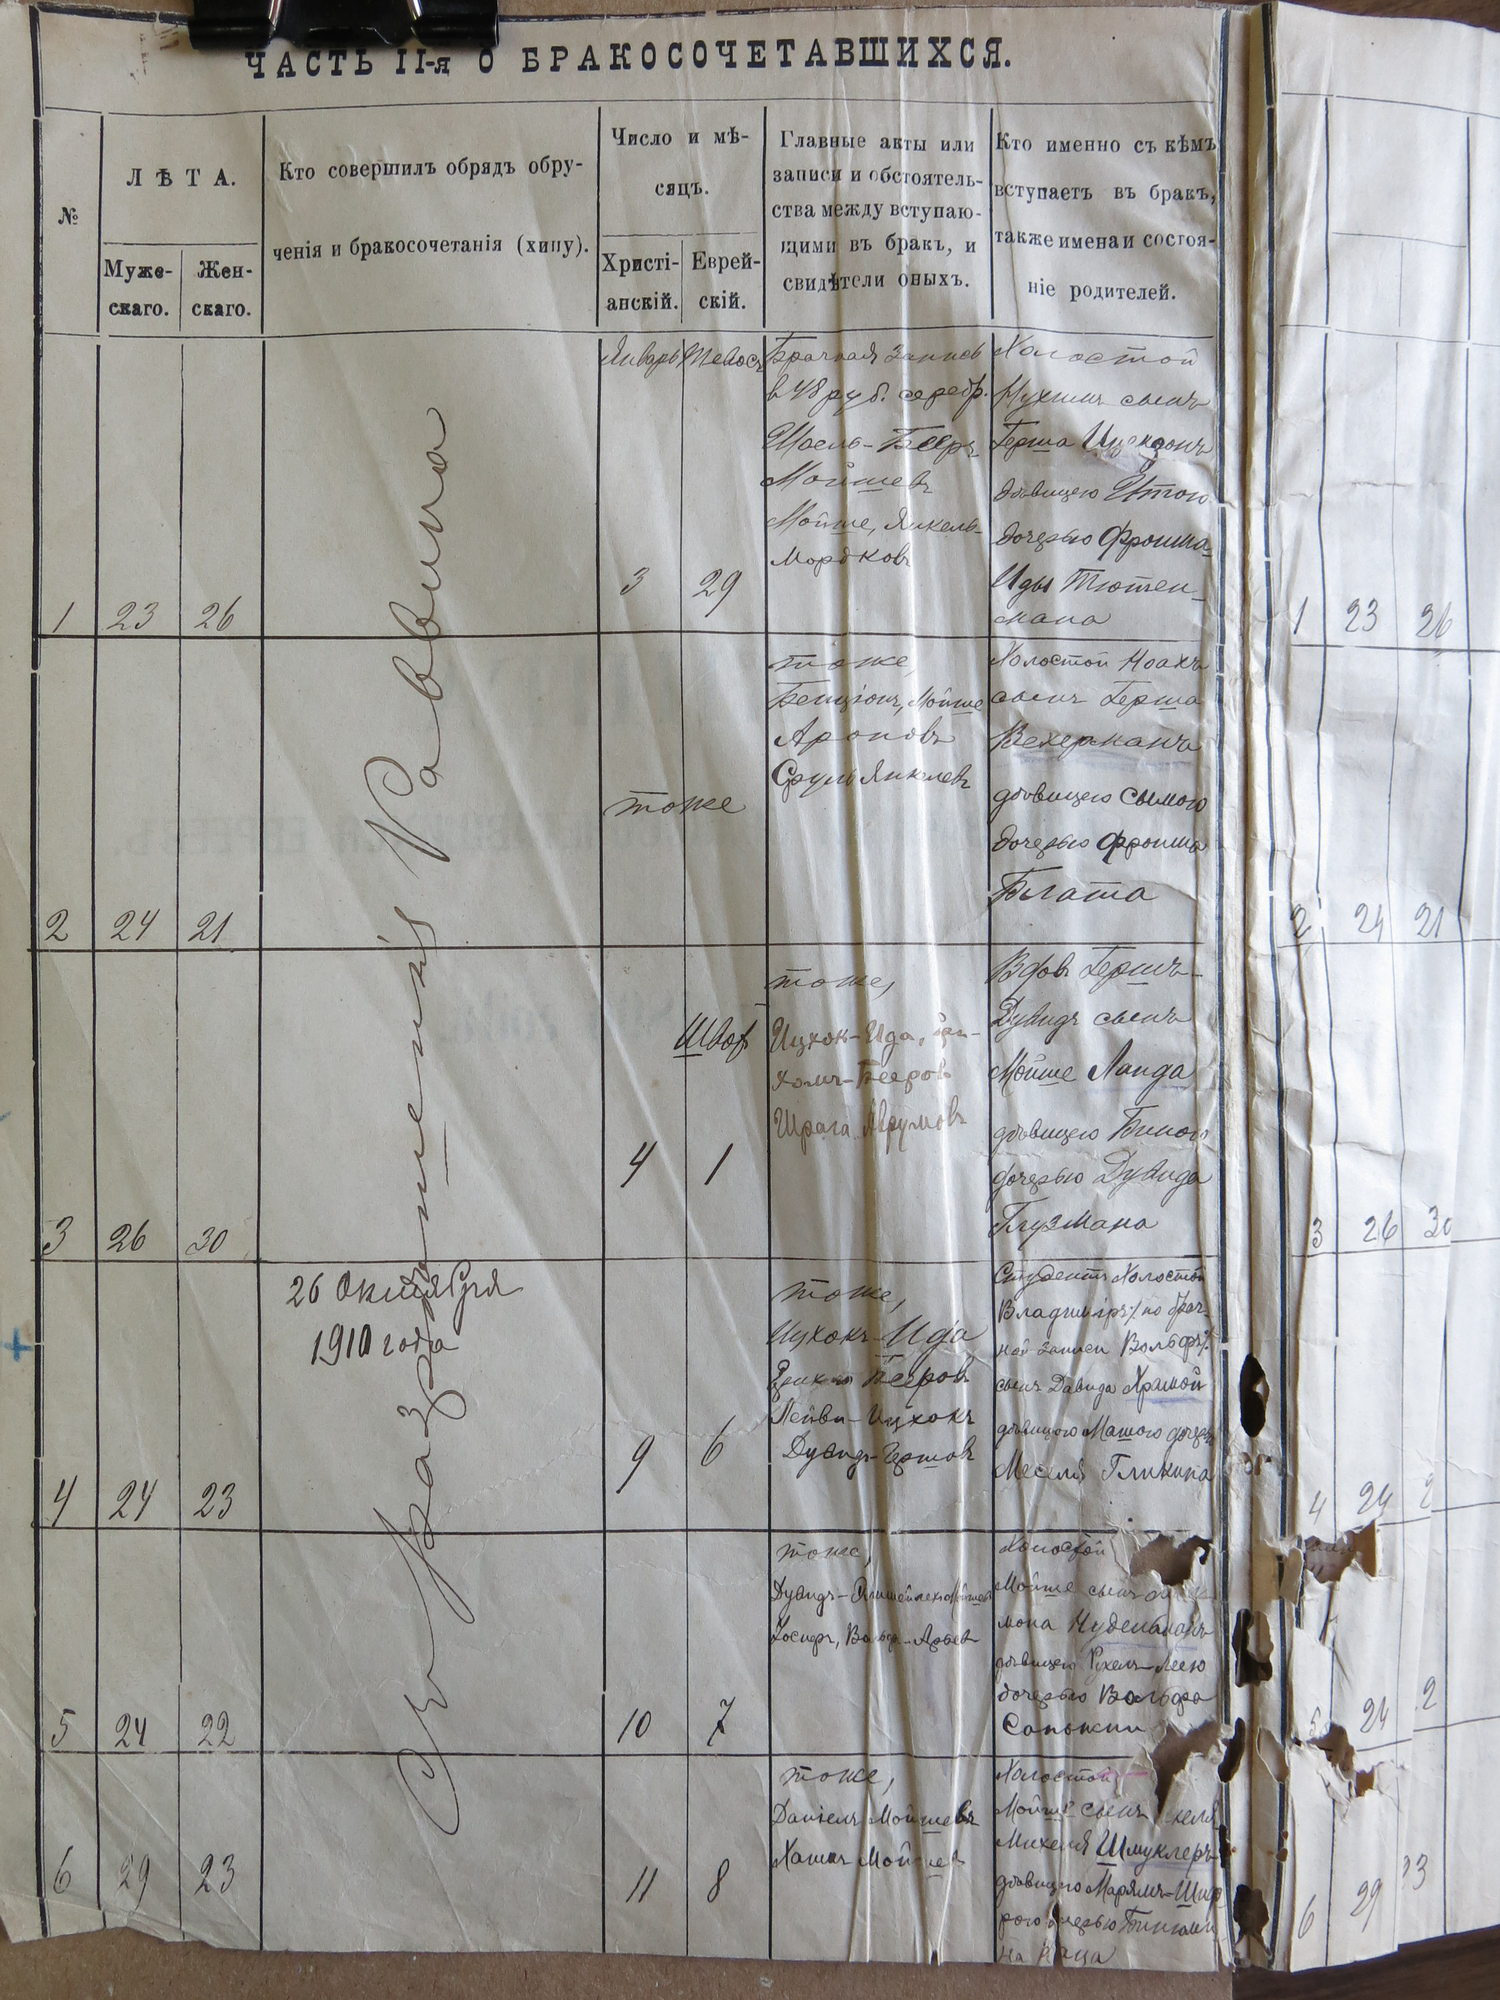 ЧАСТЬ II-я О БРАКОСОЧЕТАВШИХСЯ.
№
ЛѢТА.
Муже-
скаго.
Жен-
скаго.
Кто совершилъ обрядъ обру-
ченія и бракосочетанія (хипу).
Число и мѣ-
сяцъ.
Христі-
анскій.
Еврей-
скій.
Главные акты или
записи и обстоятель-
ства между вступаю-
щими въ бракъ, и
свидѣтели оныхъ.
Кто именно съ кѣмъ
вступаетъ въ бракъ,
также имена и состоя-
ніе родителей.
Съ разрешенія Раввина
1 23 26
Январь
3 29
Брачная запись
в 48 руб. серебр.
Шоель-Бееръ
Мойшевъ
Мойше, Янкель-
Мордковъ
Холостой
Нухимъ сынъ
Герша Ицексонъ
дѣвицею Этою
дочерью Фроима-
Иды Тютен-
мана
2 24 21
тоже
тоже,
Бенціонъ, Мойше
Ароновъ
Сруль Янкелевъ
Холостой Ноахъ
сынъ Герша
Вехерманъ
дѣвицею Сымою
дочерью Фроима
Блата
3 26 30
Шват
4 1
тоже,
Ицхок-Ида,
Бееровъ
Шрага Аврумовъ
Вдов Гершъ-
Дувидъ сынъ
Мойше Ланда
дѣвицею Биною
дочерью Дувида
Глузмана
4 24 23
26 Октября
1910 года
9 6
тоже,
Ицхокъ-Ида
Бееровъ
Лейви-Ицхокъ
Дувидъ-Гершовъ
Студентъ Холостой
Владиміръ /по брач-
ной записи Вольфъ/
сынъ Давида Храмой
дѣвицою Машою дочер
Меселя Гликина
5 24 22
10 7
тоже,
Дувидъ-
Іосифъ, Вольф-Арьев
Холостой
Мойше сынъ
мона Нудельманъ
дѣвицею Рухель-Леею
дочерью Вольфа
Сапожни
6 29 23
11 8
тоже,
Даніелъ Мойшевъ
Хаимъ Мойшев
Холостой
Мойше сынъ
Михеля Шмуклеръ
дѣвицею Марьямъ-Шиф
рою дочерью Бинюми
на Каца
1 23 26
2 24 21
3 26 30
4 24 2
5 24 2
6 29 23